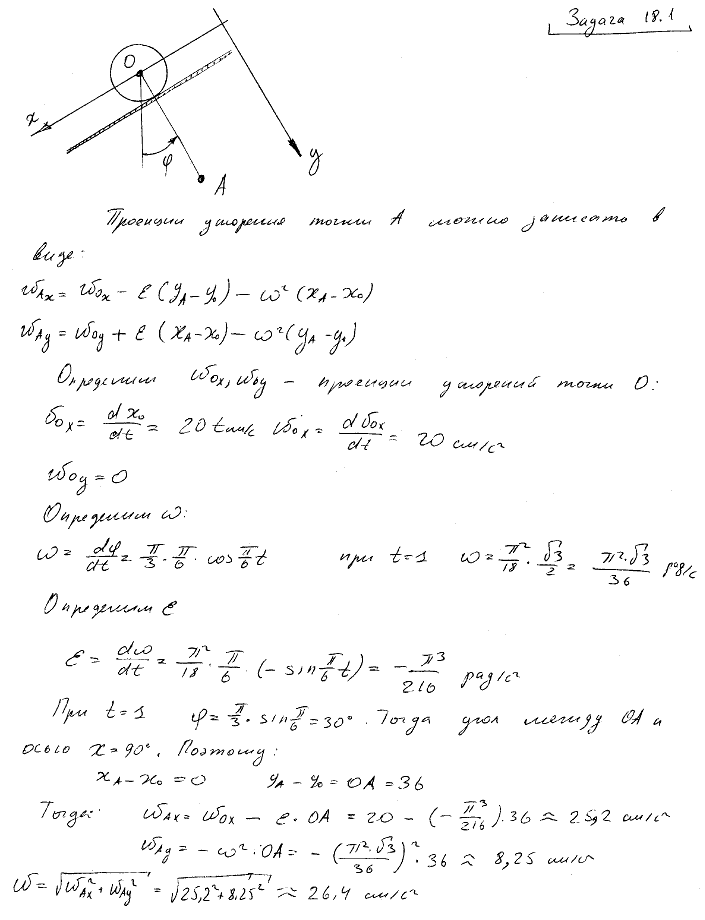 Задача 18.1
O
x
φ
A
y
Проекции ускорения точки A можно записать в
виде:
w_Ax = w_Ox − ε (y_A − y_0) − ω² (x_A − x_0)
w_Ay = w_Oy + ε (x_A − x_0) − ω² (y_A − y_0)
Определим w_Ox, w_Oy – проекции ускорений точки O:
v_Ox = dx_0/dt = 20t см/с w_Ox = dv_Ox/dt = 20 см/с²
w_Oy = 0
Определим ω:
ω = dφ/dt = π/3 · π/6 · cos π/6 t при t=1 ω = π²/18 · √3/2 = π²·√3/36 рад/с
Определим ε
ε = dω/dt = π²/18 · π/6 · (− sin π/6 t) = − π³/216 рад/с²
При t=1 φ = π/3 · sin π/6 = 30°. Тогда угол между OA и
осью x = 90°. Поэтому:
x_A − x_0 = 0 y_A − y_0 = OA = 36
Тогда: w_Ax = w_Ox − ε · OA = 20 − (− π³/216) · 36 ≈ 25,2 см/с²
w_Ay = − ω² · OA = − (π²·√3/36)² · 36 ≈ 8,25 см/с²
w = √(w_Ax² + w_Ay²) = √(25,2² + 8,25²) ≈ 26,4 см/с²